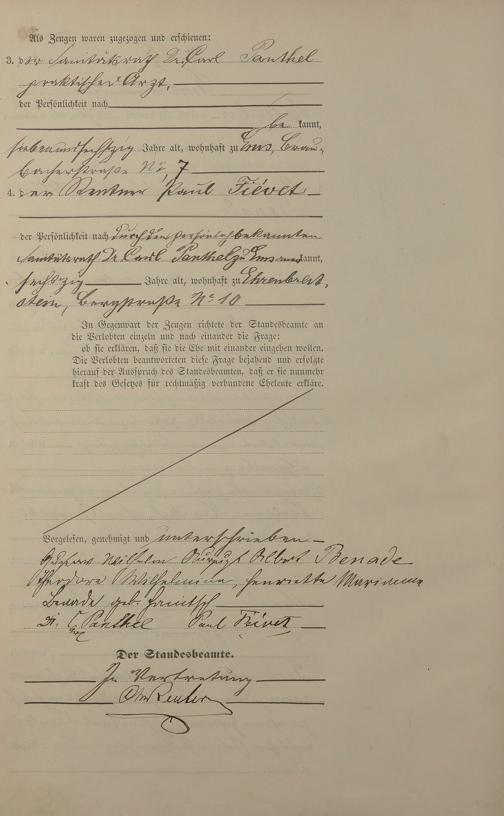 Als Zeugen waren zugezogen und erschienen:
3. der Sanitätsrath Dr. Carl Panthel
praktischer Arzt,
der Persönlichkeit nach
be kannt,
siebenundsechszig Jahre alt, wohnhaft zu Ems, Brau-
bacherstraße No. 7
4. der Rentner Paul Fiévet
der Persönlichkeit nach durch den persönlich bekannten
Sanitätsrath Dr. Carl Panthel zu Ems anerkannt,
sechszig Jahre alt, wohnhaft zu Ehrenbreit-
stein, Bergstraße No 10
In Gegenwart der Zeugen richtete der Standesbeamte an
die Verlobten einzeln und nach einander die Frage:
ob sie erklären, daß sie die Ehe mit einander eingehen wollen.
Die Verlobten beantworteten diese Frage bejahend und erfolgte
hierauf der Ausspruch des Standesbeamten, daß er sie nunmehr
kraft des Gesetzes für rechtmäßig verbundene Eheleute erkläre.
Vorgelesen, genehmigt und unterschrieben
Gustav Wilhelm August Albert Benade
Theodore Wilhelmina, Henriette Marianne
Benade geb.
Dr. C Panthel Paul Fiévet
Der Standesbeamte.
In Vertretung